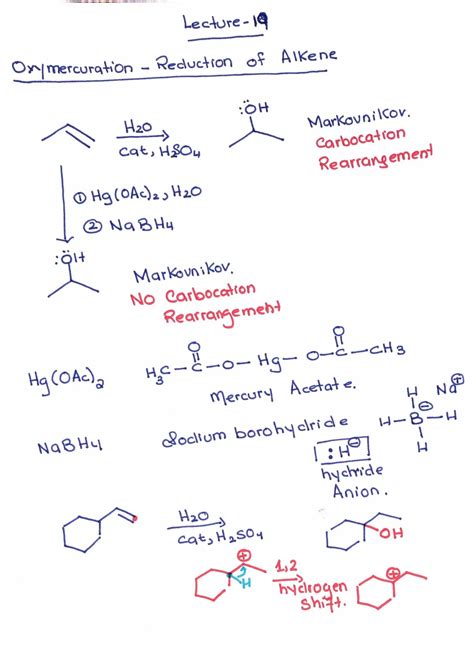 Lecture-19
Oxymercuration - Reduction of Alkene
H2O
Cat, H2SO4
:ÖH
Markovnilkov.
Carbocation
Rearrangement
① Hg(OAc)2, H2O
② NaBH4
:ÖH
Markovnikov.
No Carbocation
Rearrangement
Hg(OAc)2
H3C-C-O-Hg-O-C-CH3
O
O
Mercury Acetate.
NaBH4
Sodium borohydride
H
H-B-H
H
⊖
Na⊕
:H⊖
hydride
Anion.
H2O
Cat, H2SO4
OH
⊕
H
1,2
hydrogen
Shift.
⊕